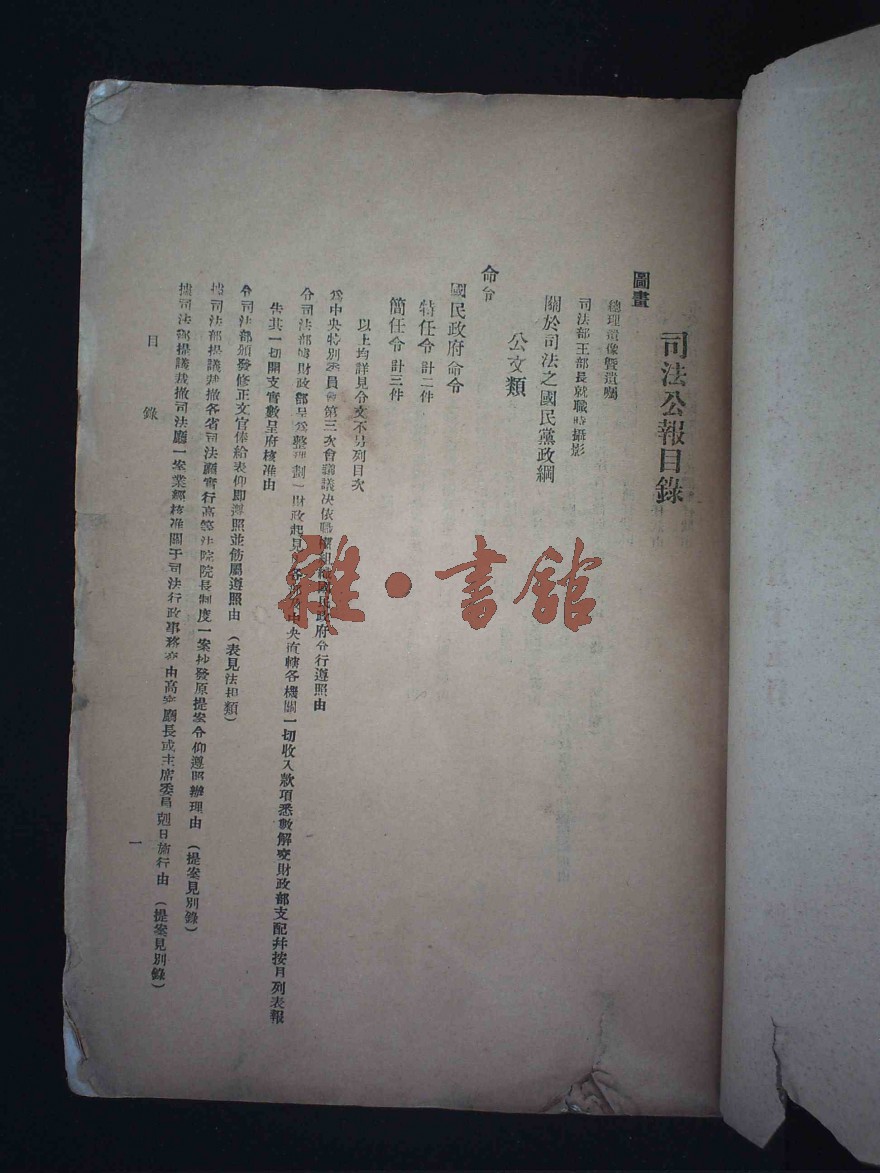 司法公報目錄
圖畫
總理遺像暨遺囑
司法部王部長就職時攝影
關於司法之國民黨政綱
公文類
命令
國民政府命令
特任令 計二件
簡任令 計三件
以上均詳見令文不另列目次
爲中央特別委員會第三次會議議决依職權組織國民政府令行遵照由
令司法部據財政部呈爲整理劃一財政起見各部及中央直轄各機關一切收入款項悉數解交財政部支配幷按月列表報
告其一切開支實數呈府核准由
令司法部頒發修正文官俸給表仰卽遵照並飭屬遵照由 (表見法規類)
據司法部提議裁撤各省司法廳實行高等法院院長制度一案抄發原提案令仰遵照辦理由 (提案見別錄)
據司法部提議裁撤司法廳一案業經核准關于司法行政事務交由高等廳長或主席委員剋日施行由 (提案見別錄)
目 錄
一
雜·書館